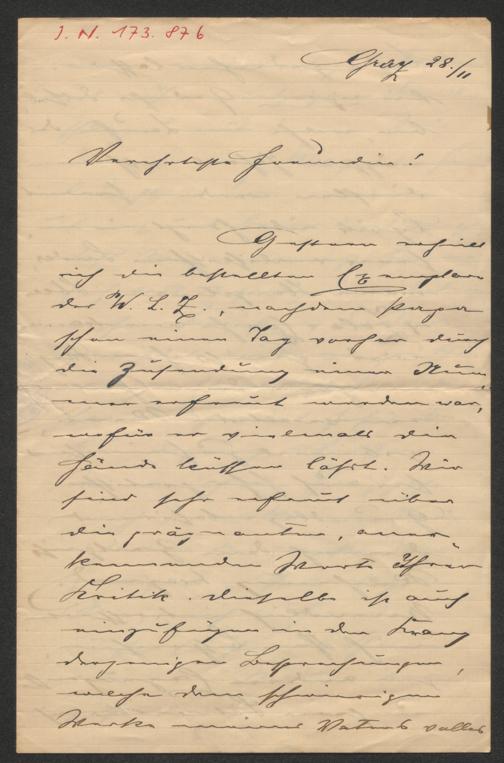 I. N. 173.876
Graz 28./11
Verehrteste Freundin!
Gestern erhielt
ich die bestellten Exemplare
der W. L. Z., nachdem Papa
schon einen Tag vorher durch
die Zusendung einer Num-
mer erfreut worden war,
wofür er vielmals die
Hände küssen läßt. Wir
sind sehr erfreut über
die prägnanten, aner-
kennenden Worte Ihrer
Kritik. Dieselbe ist auch
einzufügen in den Kranz
derjenigen Besprechungen,
welche dem schwierigen
Werke meines Vaters volles